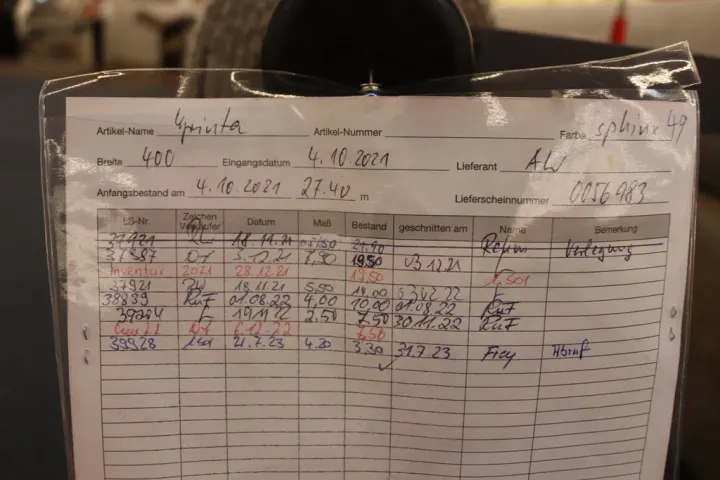 Artikel-Name Sprinter Artikel-Nummer Farbe sphinx 49
Breite 400 Eingangsdatum 4.10.2021 Lieferant AW
Anfangsbestand am 4.10.2021 27.40 m Lieferscheinnummer 0056983
LS-Nr. Zeichen Verkäufer Datum Maß Bestand geschnitten am Name Bemerkung
37921 18.11.21 21.90 Verlegung
37387 19.50 03.12.21
Inventur 2021 28.12.21 19.50
37921 18.11.21 5,50 14,00
38839 RuF 01.08.22 4,00 10,00 01.08.22 RuF
2.50 7,50 30.11.22 RuF
6.12.22 7,50
39928 21.7.23 4.20 3.30 31.7.23 Frey Abruf